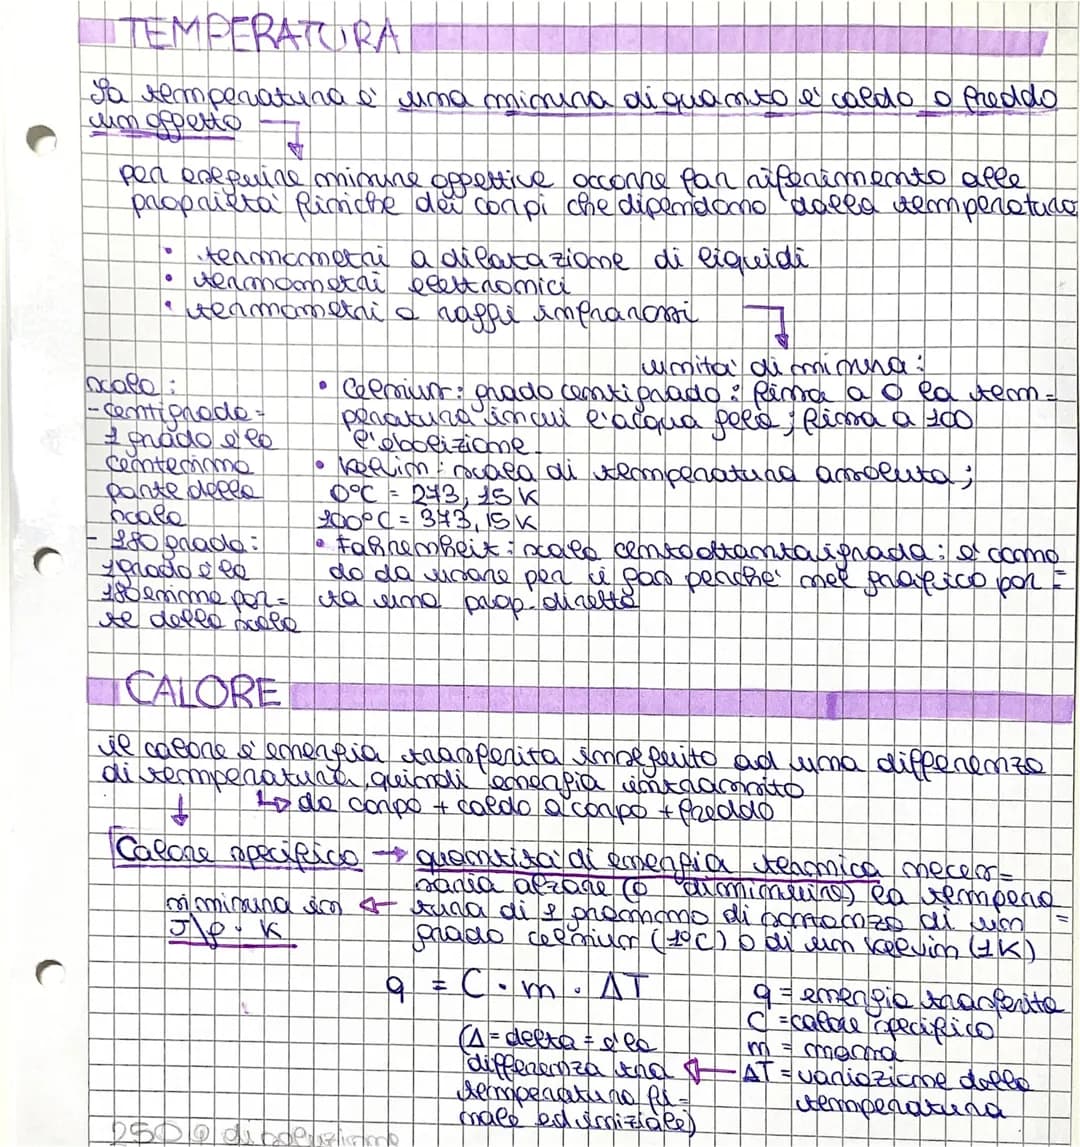 TEMPERATURA
La temperatura è una misura di quanto è caldo o freddo
un oggetto
per eseguire misure oggettive occorre far riferimento alle
proprietà fisiche dei corpi che dipendono dalla temperatura
• termometri a dilatazione di liquidi
• termometri elettronici
• termometri a raggi infrarossi
unità di misura:
scale:
- centigrada =
1 grado è la
centesima
parte della
scala
- 180 gradi:
1 grado è la
180esima par=
te della scala
• Celsius: grado centigrado: fissa a 0 la tem=
peratura in cui l'acqua gela; fissa a 100
l'ebollizione.
• Kelvin: scala di temperatura assoluta;
0°C = 273,15 K
100°C = 373,15 K
• Fahrenheit: scala centottantaigrada: è como
do da usare per i gas perché nel grafico por=
ta una prop. diretta
CALORE
il calore è energia trasferita in seguito ad una differenza
di temperatura, quindi energia in transito
↳ da corpo + caldo a corpo + freddo
Calore specifico → quantità di energia termica neces=
saria alzare (o diminuire) la tempera
si misura in ← tura di 1 grammo di sostanza di un =
J/g · K grado celsius (1°C) o di un kelvin (1K)
q = C · m · ΔT
q = energia trasferita
C = calore specifico
m = massa
ΔT = variazione della
temperatura
(Δ = delta = è la
differenza tra
temperatura fi=
nale ed iniziale)
250 g di soluzione